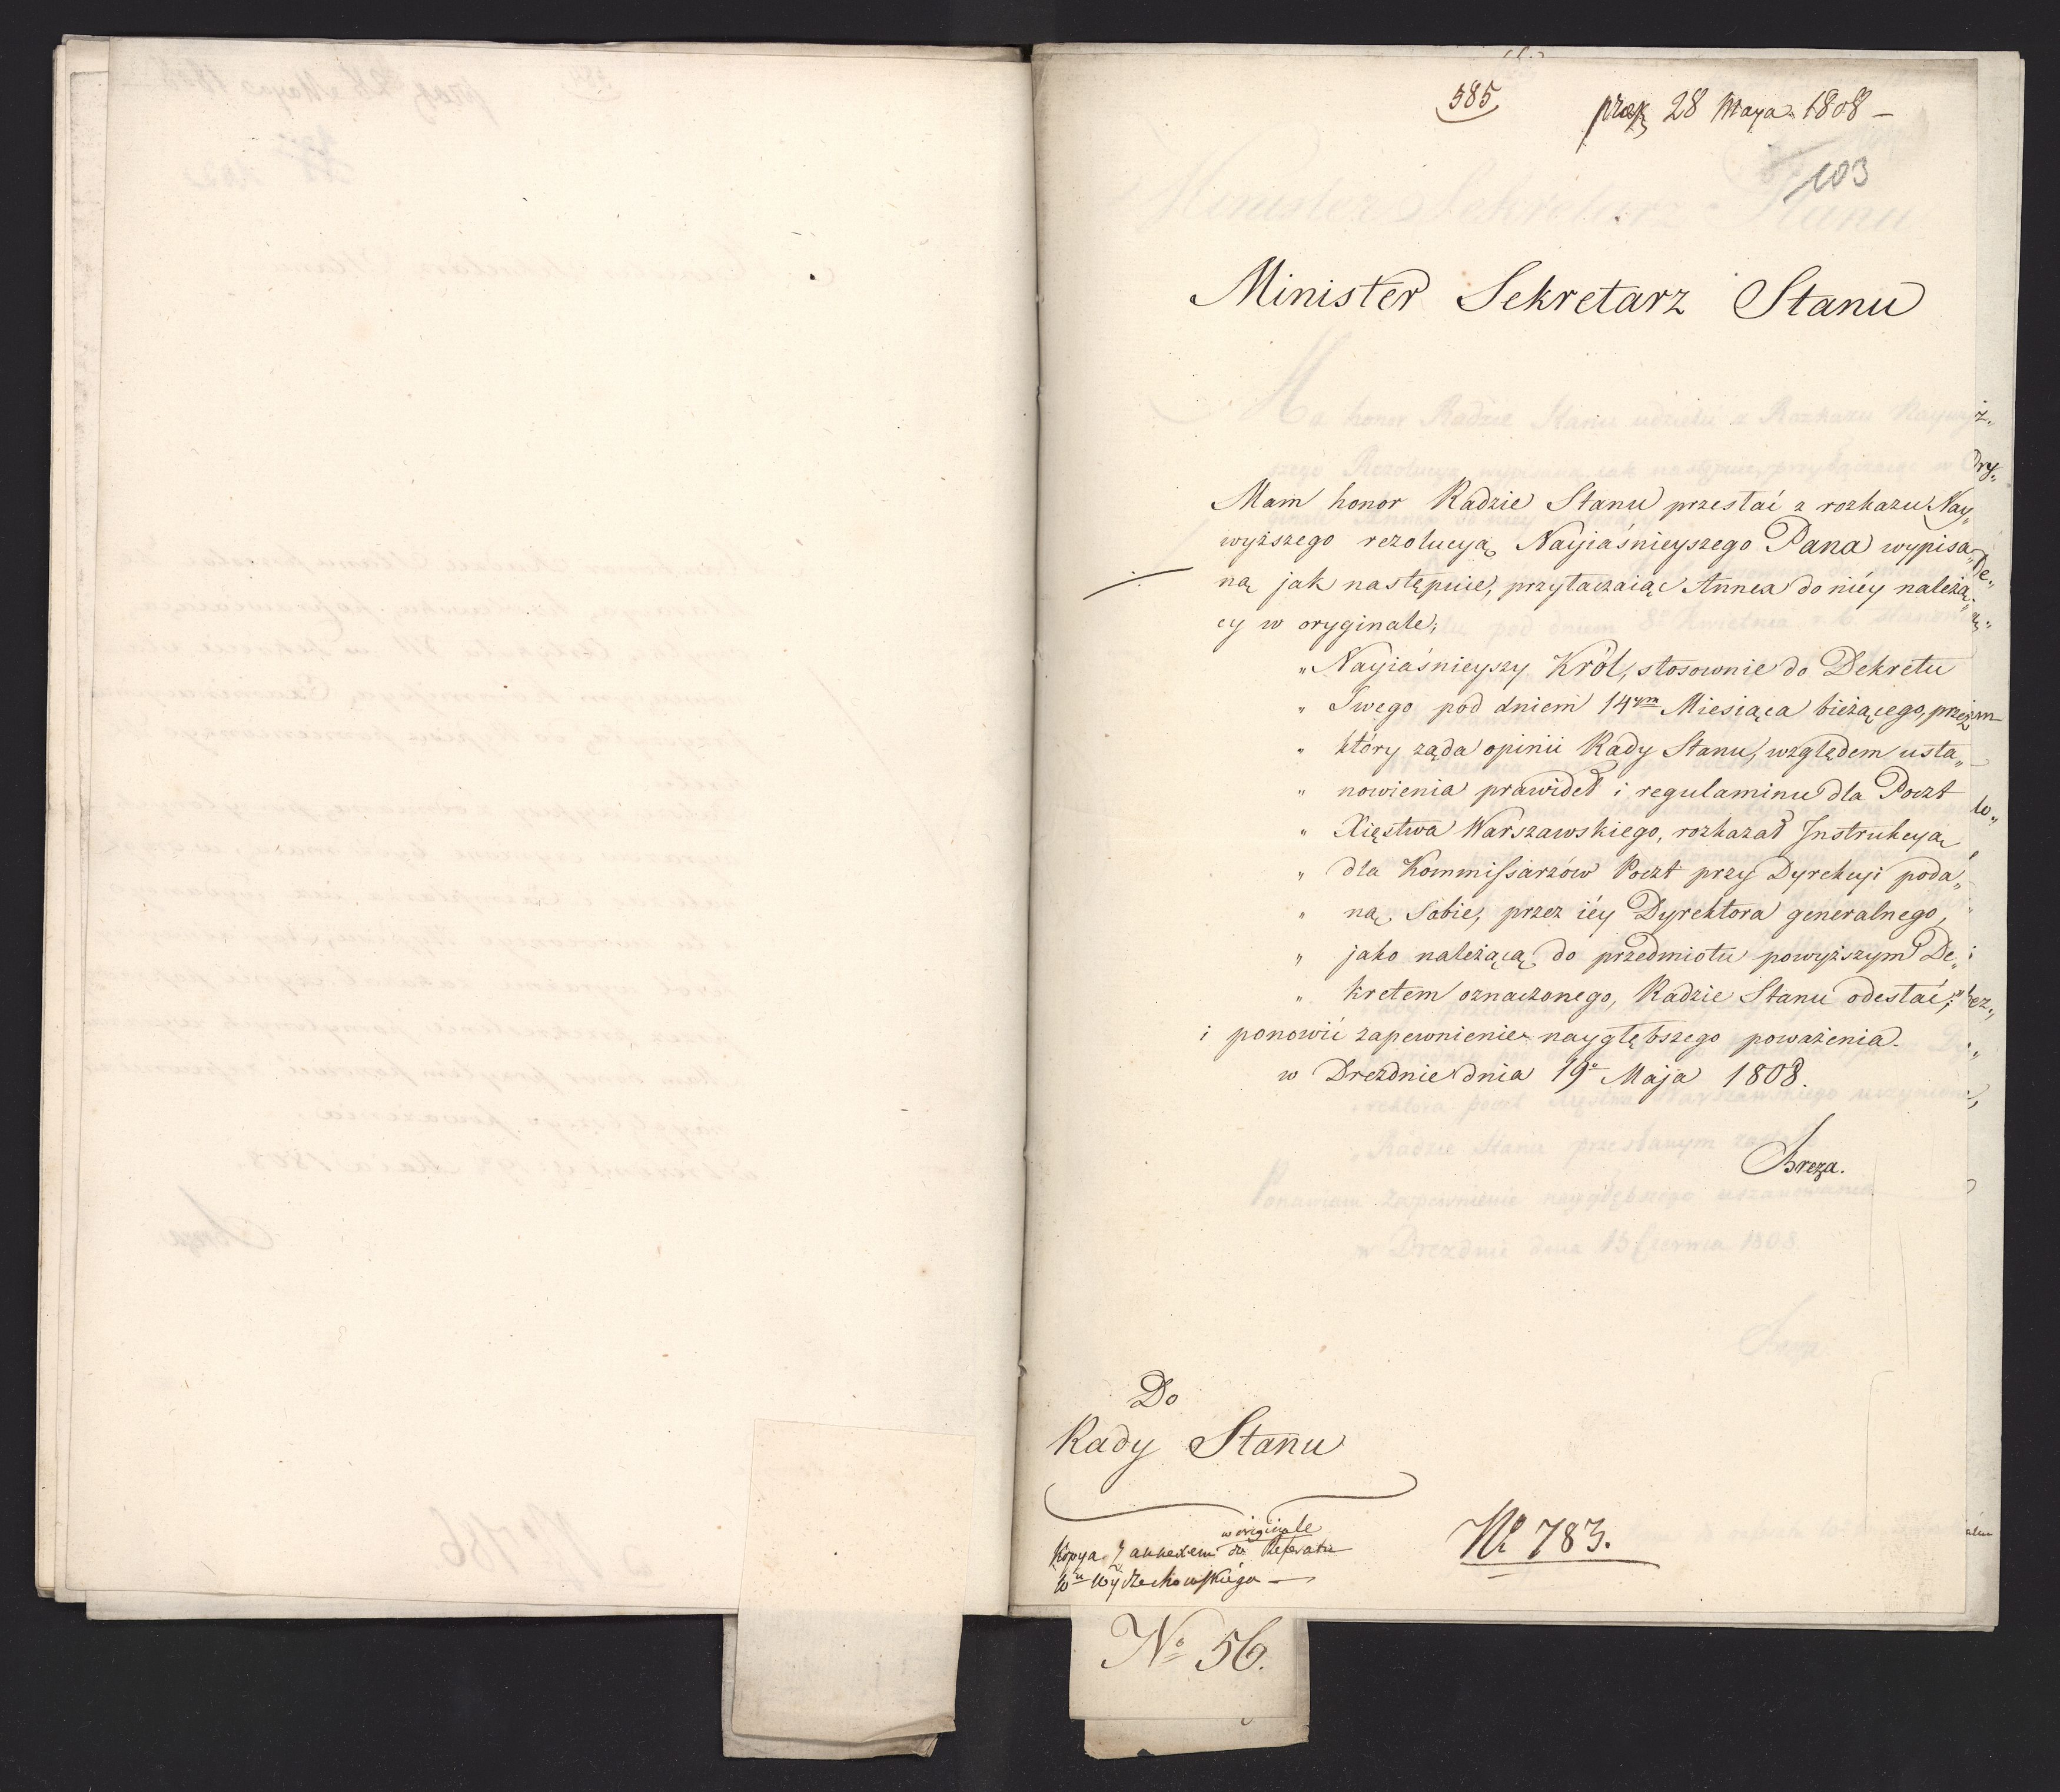 385
praes 28 Maya 1808 –
103
Minister Sekretarz Stanu
Mam honor Radzie Stanu przesłać z rozkazu Nay„
wyższego rezolucyą Nayiaśnieyszego Pana wypisa„
ną jak następuie, przytaczaiąc Annexa do niéy należą„
cy w oryginale;
„ Nayiaśnieyszy Król, stosownie do Dekretu
„ Swego pod dniem 14ym Miesiąca bieżącego, przez
„ który żąda opinii Rady Stanu, względem usta„
„ nowienia prawideł i regulaminu dla Poczt
„ Xięstwa Warszawskiego, rozkazał Instrukcyą
„ dla Kommissarzów Poczt przy Dyrekcyi poda„
„ ną, Sobie, przez iéy Dyrektora generalnego,
„ jako należącą do przedmiotu powyższym De„
„ kretem oznaczonego, Radzie Stanu odesłać;"
i ponowić zapewnienie naygłębszego poważenia.
w Dreznie dnia 19o Maja 1808.
Breza.
Do
Rady Stanu
w originale
Kopya z annexem do Referatu
Wu Wyczechowskiego —
No 783.
No 56.